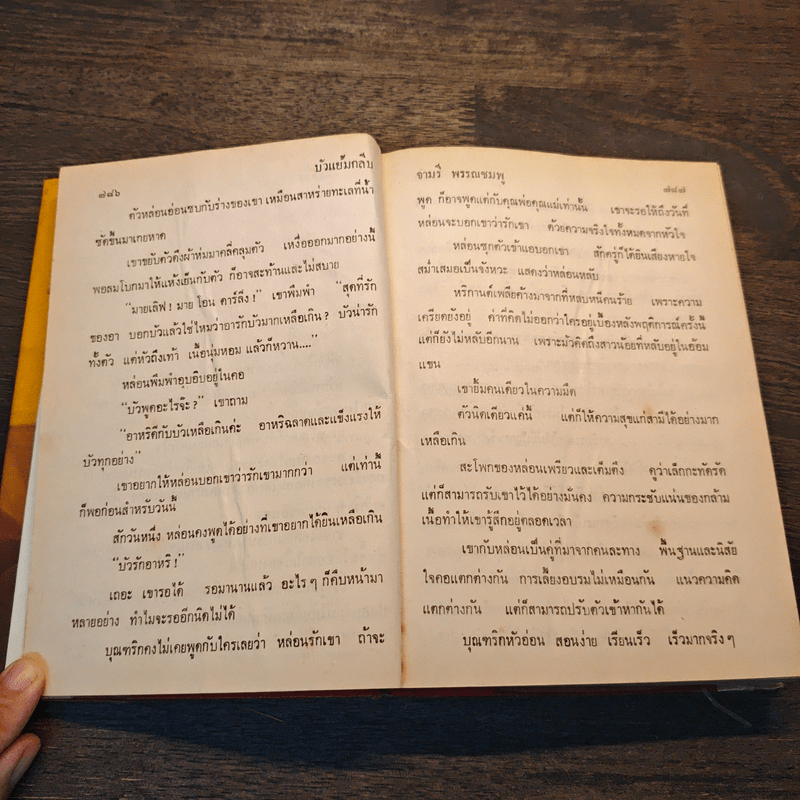 บัวแย้มกลีบ
๗๘๖
ตัวหล่อนอ่อนซบกับร่างของเขา เหมือนสาหร่ายทะเลที่น้ำ
ซัดขึ้นมาเกยหาด
เขาขยับตัวดึงผ้าห่มมาคลี่คลุมตัว เหงื่อออกมากอย่างนี้
พอลมโบกมาให้แห้งเย็นกับตัว ก็อาจสะท้านและไม่สบาย
“มายเลิฟ ! มาย โอน ดาร์ลิ่ง !” เขาพึมพำ “สุดที่รัก
ของอา บอกบัวแล้วใช่ไหมว่าอารักบัวมากเหลือเกิน ? บัวน่ารัก
ทั้งตัว แต่หัวถึงเท้า เนื้อนุ่มหอม แล้วก็หวาน....”
หล่อนพึมพำอุบอิบอยู่ในคอ
“บัวพูดอะไรจ๊ะ ?” เขาถาม
“อาหริดีกับบัวเหลือเกินค่ะ อาหริฉลาดและแข็งแรงให้
บัวทุกอย่าง”
เขาอยากให้หล่อนบอกเขาว่ารักเขามากกว่า แต่เท่านี้
ก็พอก่อนสำหรับวันนี้
สักวันหนึ่ง หล่อนคงพูดได้อย่างที่เขาอยากได้ยินเหลือเกิน
“บัวรักอาหริ !”
เถอะ เขารอได้ รอมานานแล้ว อะไร ๆ ก็คืบหน้ามา
หลายอย่าง ทำไมจะรออีกนิดไม่ได้
บุณฑริกคงไม่เคยพูดกับใครเลยว่า หล่อนรักเขา ถ้าจะ
จามรี พรรณชมพู
๗๘๗
พูด ก็อาจพูดแต่กับคุณพ่อคุณแม่เท่านั้น เขาจะรอให้ถึงวันที่
หล่อนจะบอกเขาว่ารักเขา ด้วยความจริงใจทั้งหมดจากหัวใจ
หล่อนซุกตัวเข้าแอบอกเขา สักครู่ก็ได้ยินเสียงหายใจ
สม่ำเสมอเป็นจังหวะ แสดงว่าหล่อนหลับ
หริกานต์เพลียค้างมาจากที่หลบหนีคนร้าย เพราะความ
เครียดยังอยู่ ค่าที่คิดไม่ออกว่าใครอยู่เบื้องหลังพฤติการณ์ครั้งนี้
แต่ก็ยังไม่หลับอีกนาน เพราะมัวคิดถึงสาวน้อยที่หลับอยู่ในอ้อม
แขน
เขายิ้มคนเดียวในความมืด
ตัวนิดเดียวแค่นี้ แต่ก็ให้ความสุขแก่สามีได้อย่างมาก
เหลือเกิน
สะโพกของหล่อนเพรียวและเต็มตึง ดูว่าเล็กกะทัดรัด
แต่ก็สามารถรับเขาไว้ได้อย่างมั่นคง ความกระชับแน่นของกล้าม
เนื้อทำให้เขารู้สึกอยู่ตลอดเวลา
เขากับหล่อนเป็นคู่ที่มาจากคนละทาง พื้นฐานและนิสัย
ใจคอแตกต่างกัน การเลี้ยงอบรมไม่เหมือนกัน แนวความคิด
แตกต่างกัน แต่ก็สามารถปรับตัวเข้าหากันได้
บุณฑริกหัวอ่อน สอนง่าย เรียนเร็ว เร็วมากจริง ๆ